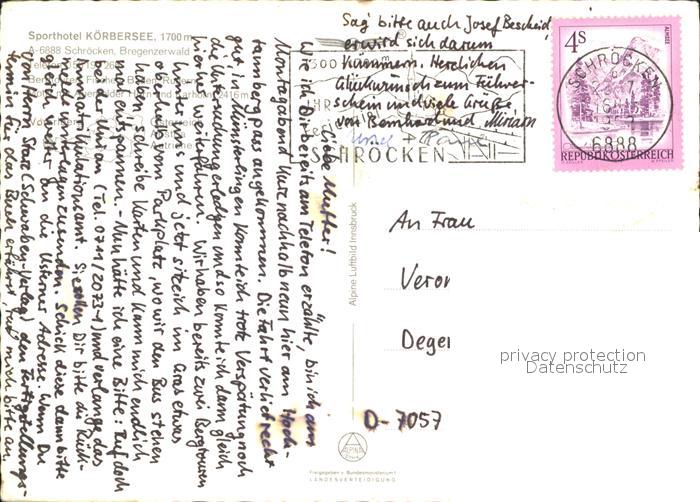 Sporthotel KÖRBERSEE, 1700 m
A-6888 Schröcken, Bregenzerwald
Sag' bitte auch Josef Bescheid,
er wird sich darum
kümmern. Herzlichen
Glückwunsch zum Führer-
schein und viele Grüße,
von Bernhard und Miriam
SCHRÖCKEN
4S
ALMSEE
SCHRÖCKEN
6888
REPUBLIK ÖSTERREICH
Liebe Mutter!
Wie ich Dir bereits am Telefon erzählte, bin ich am
Montagabend kurz nach halb neun hier am Hoch-
tannbergpass angekommen. Die Fahrt verlief recht
gut, in Künzelsau konnte ich trotz Verspätung noch
die Untersuchung erledigen und so konnte ich dann gleich
hierher weiterfahren. Wir haben bereits zwei Bergtouren
hinter uns und jetzt sitze ich im Gras etwas
oberhalb vom Parkplatz, wo wir den Bus stehen
haben, schreibe Karten und kann mich endlich
mal entspannen. - Nun hätte ich eine Bitte: Ruf doch
bei der Uni an (Tel. 0711/2073-1) und verlange das
Immatrikulationsamt. Sie sollen Dir bitte die Rück-
meldeunterlagen zusenden. Schick diese dann bitte
gleich weiter an die Ulsterner Adresse. Wenn Du
von Herrn Skarz (Schwaben-Verlag) den Fertigstellungs-
termin für das Buch erfährst, ruf mich bitte an.
Alpine Luftbild Innsbruck
An Frau
Veron
Degen
privacy protection
Datenschutz
D-7057
ALPINE
Freigegeben v. Bundesministerium f.
LANDESVERTEIDIGUNG